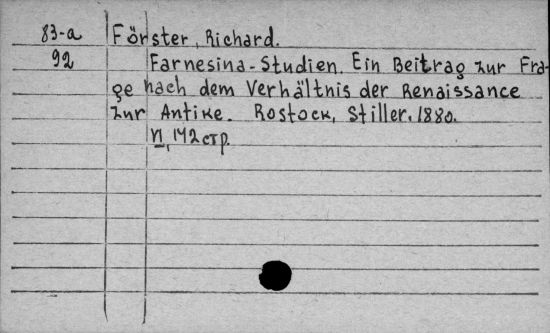 83-a Förster, Richard.
92 Farnesina-Studien. Ein Beitrag zur Fra-
ge nach dem Verhältnis der Renaissance
zur Antike. Rostock, Stiller. 1880.
142 стр.